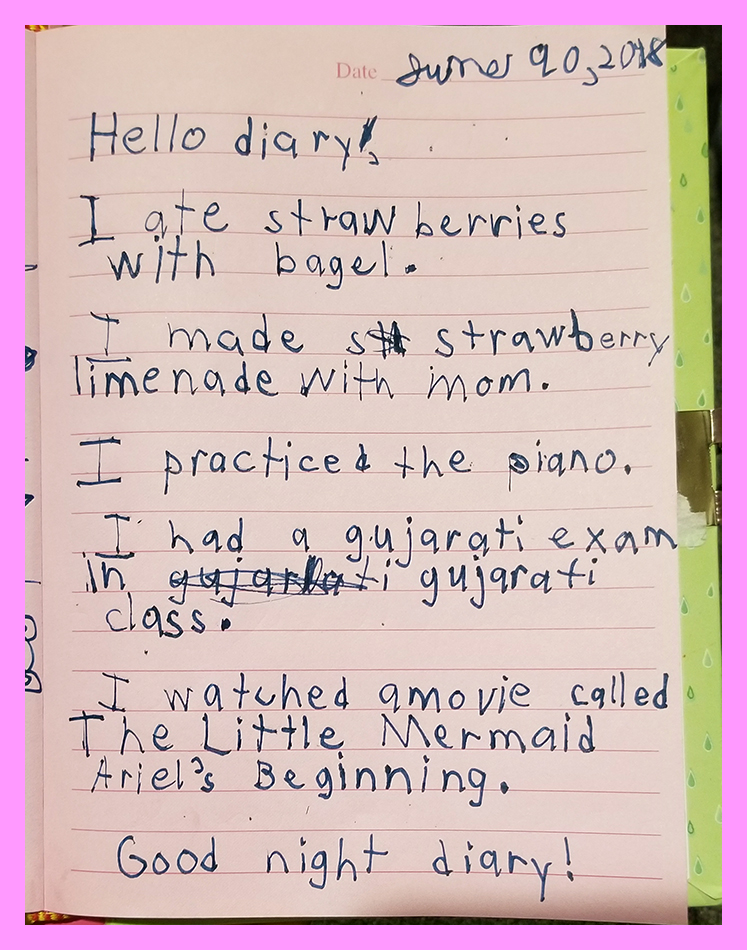 Date June 90, 2018
Hello diary,
I ate strawberries
with bagel.
I made strawberry
limenade with mom.
I practiced the piano.
I had a gujarati exam
in gujarati gujarati
class.
I watched a movie called
The Little Mermaid
Ariel's Beginning.
Good night diary!